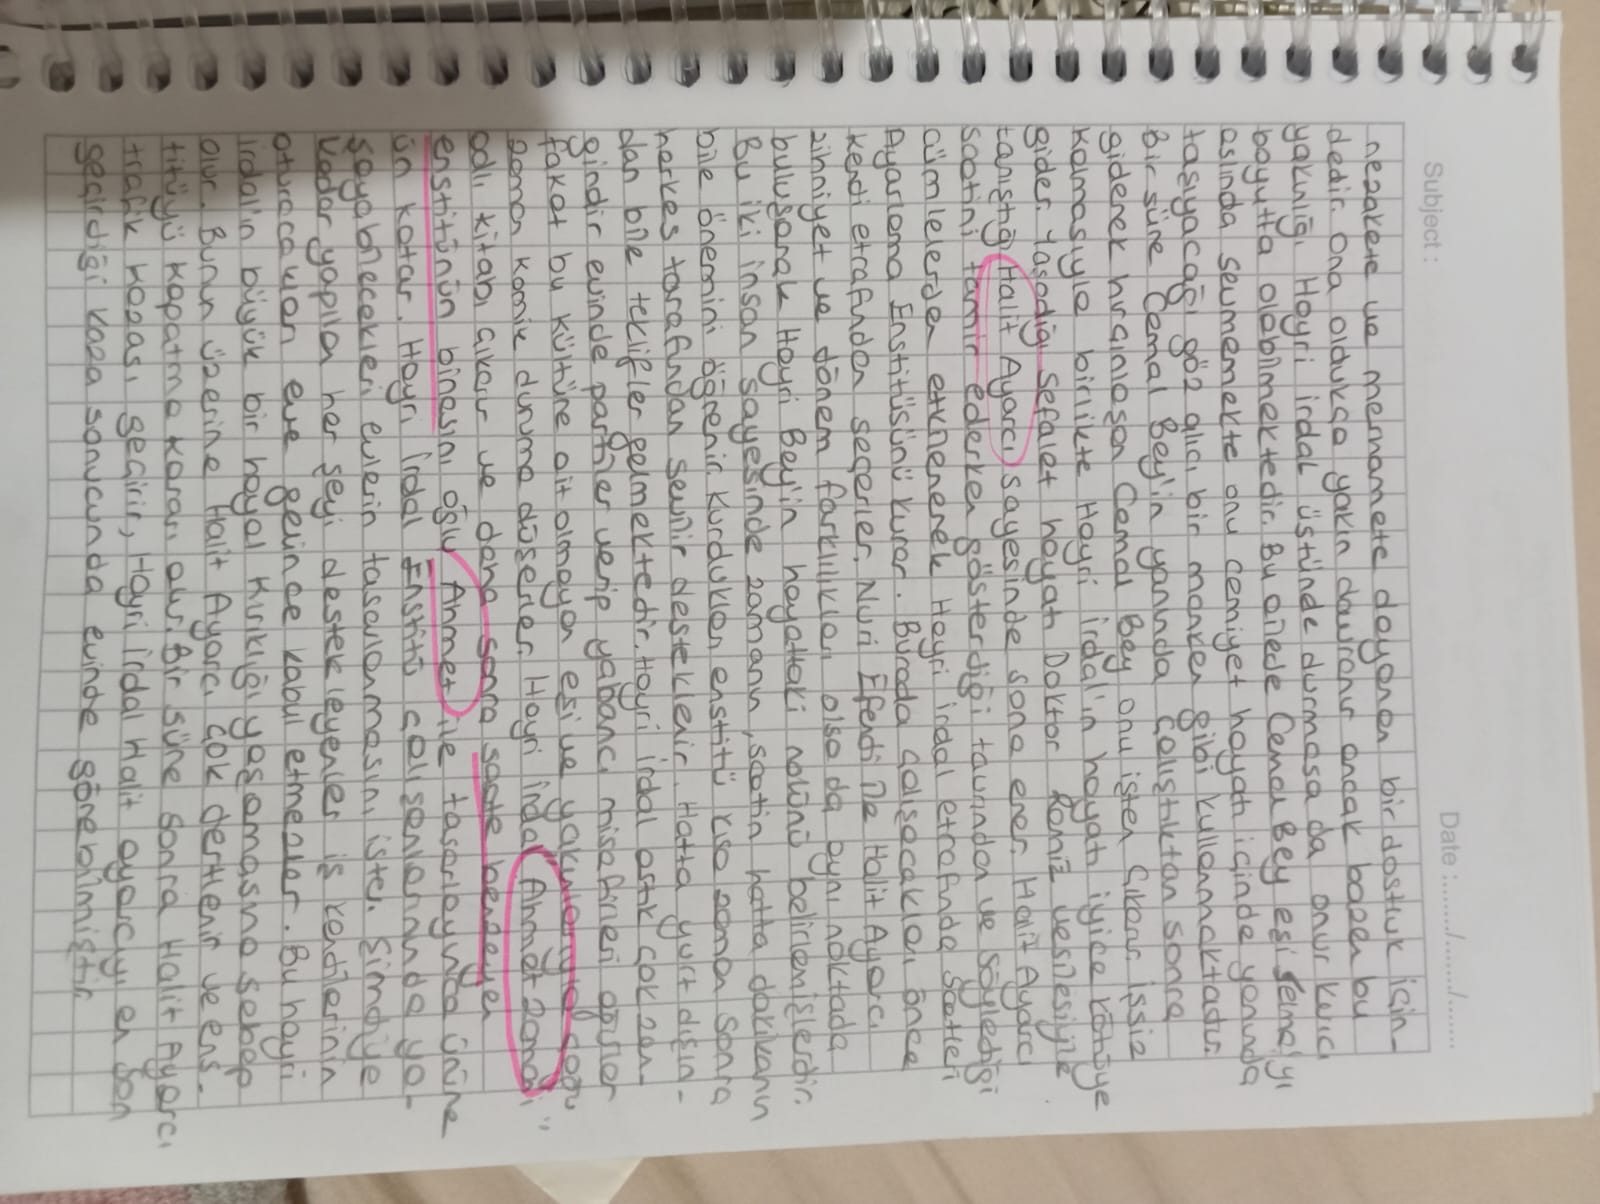 Subject :
Date :......../......../........
nezakete ve merhamete dayanan bir dostluk için-
dedir. Ona oldukça yakın davranır ancak bazen bu
yakınlığı Hayri irdal üstünde durmasa da onur kırıcı
boyutta olabilmektedir. Bu ailede Cemal Bey eşi Selma'yı
aslında sevmemekte onu cemiyet hayatı içinde yanında
taşıyacağı göz alıcı bir manken gibi kullanmaktadır.
Bir süre Cemal Bey'in yanında çalıştıktan sonra
giderek hırçınlaşan Cemal Bey onu işten çıkarır. İşsiz
kalmasıyla birlikte Hayri irdal'ın hayatı iyice kötüye
gider. Yaşadığı sefalet hayatı Doktor Ramiz vesilesiyle
tanıştığı Halit Ayarcı sayesinde sona erer. Halit Ayarcı
saatini tamir ederken gösterdiği tavırdan ve söylediği
cümlelerden etkilenerek Hayri irdal etrafında Saatleri
Ayarlama Enstitüsünü kurar. Burada çalışacakları önce
kendi etrafından seçerler. Nuri Efendi ile Halit Ayarcı
zihniyet ve dönem farklılıkları olsa da aynı noktada
buluşarak Hayri Bey'in hayattaki rolünü belirlemişlerdir.
Bu iki insan sayesinde zamanın, saatin hatta dakikanın
bile önemini öğrenir. Kurdukları enstitü kısa zaman sonra
herkes tarafından sevilir desteklenir. Hatta yurt dışın-
dan bile teklifler gelmektedir. Hayri irdal artık çok zen-
gindir evinde partiler verip yabancı misafirleri ağırlar
fakat bu kültüre ait olmayan eşi ve yakınlarıyla çoğu
zaman komik duruma düşerler. Hayri irdal "Ahmet Zamani"
adlı kitabı çıkarır ve daha sonra saate benzeyen
enstitünün binasını oğlu Ahmet ile tasarlayınca ününe
ün katar. Hayri irdal Enstitü çalışanlarında ya-
şayabilecekleri evlerin tasarlanmasını ister. Şimdiye
kadar yapılan her şeyi destekleyenler iş kendilerinin
oturacakları eve gelince kabul etmezler. Bu hayri
irdal'ın büyük bir hayal kırıklığı yaşamasına sebep
olur. Bunun üzerine Halit Ayarcı çok dertlenir ve ens-
titüyü kapatma kararı alır. Bir süre sonra Halit Ayarcı
trafik kazası geçirir, Hayri irdal Halit ayarcıyı en son
geçirdiği kaza sonucunda evinde görebilmiştir.